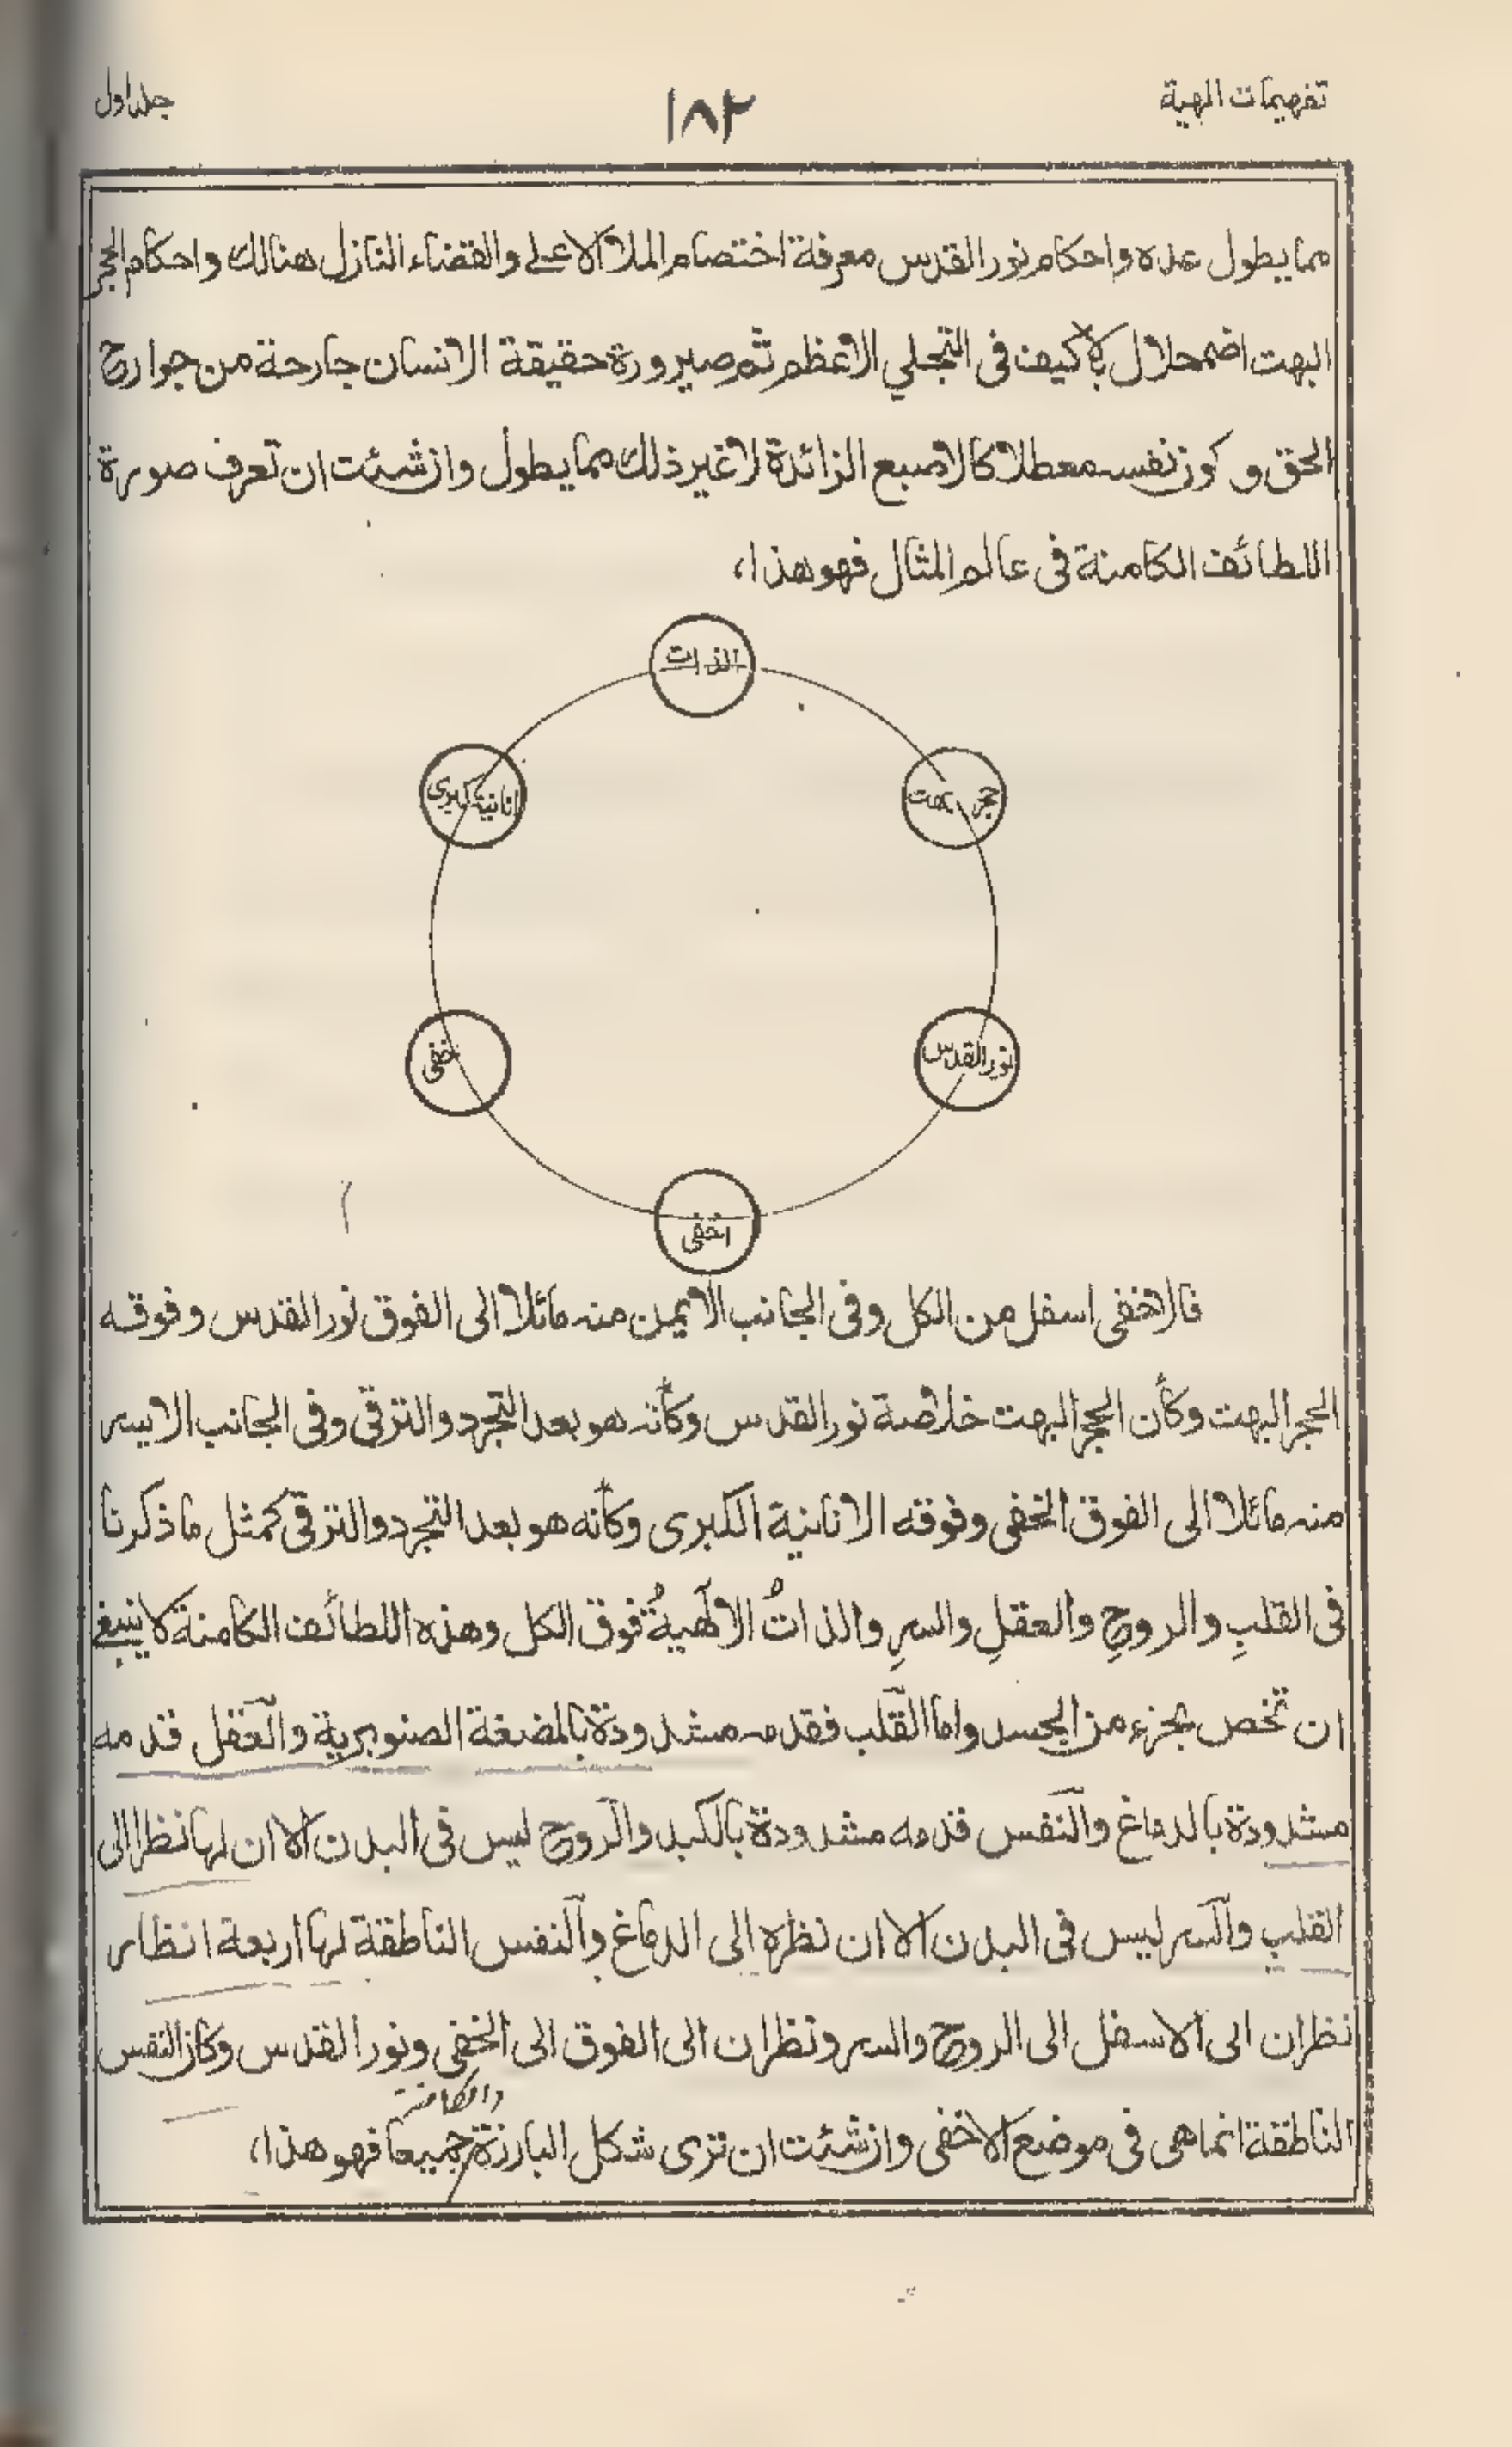 تفهيمات الهية
١٨٢
جلد اول
مما يطول عده واحكام نور القدس معرفة اختصام الملأ الاعلى والقضاء النازل هنالك واحكام الحجر
البهت اضمحلال بلا كيف فى التجلي الاعظم ثم صيرورة حقيقة الانسان جارحة من جوارح
الحق و كون نفسه معطلا كالاصبع الزائدة لا غير ذلك مما يطول وان شئت ان تعرف صورة
اللطائف الكامنة فى عالم المثال فهو هذا،
الذات
انانية كبرى
حجر بهت
خفى
نور القدس
اخفى
فالاخفى اسفل من الكل وفى الجانب الايمن منه مائلا الى الفوق نور القدس وفوقه
الحجر البهت وكأن الحجر البهت خلاصة نور القدس وكأنه هو بعد التجرد والترقى وفى الجانب الايسر
منه مائلا الى الفوق الخفى وفوقه الانانية الكبرى وكأنه هو بعد التجرد والترقى كمثل ما ذكرنا
فى القلبِ والروحِ والعقلِ والسرِ والذاتُ الالٰهيةُ فوق الكل وهذه اللطائف الكامنة لا ينبغى
ان تخص بجزء من الجسد واما القلب فقدمه مشدودة بالمضغة الصنوبرية والعقل قدمه
مشدودة بالدماغ والنفس قدمه مشدودة بالكبد والروح ليس فى البدن الا ان لها نظرا الى
القلب والسر ليس فى البدن الا ان نظره الى الدماغ والنفس الناطقة لها اربعة انظار
نظران الى الاسفل الى الروح والسر ونظران الى الفوق الى الخفى ونور القدس وكان النفس
والكامنة
الناطقة انما هى فى موضع الاخفى وان شئت ان ترى شكل البارزة جميعا فهو هذا،